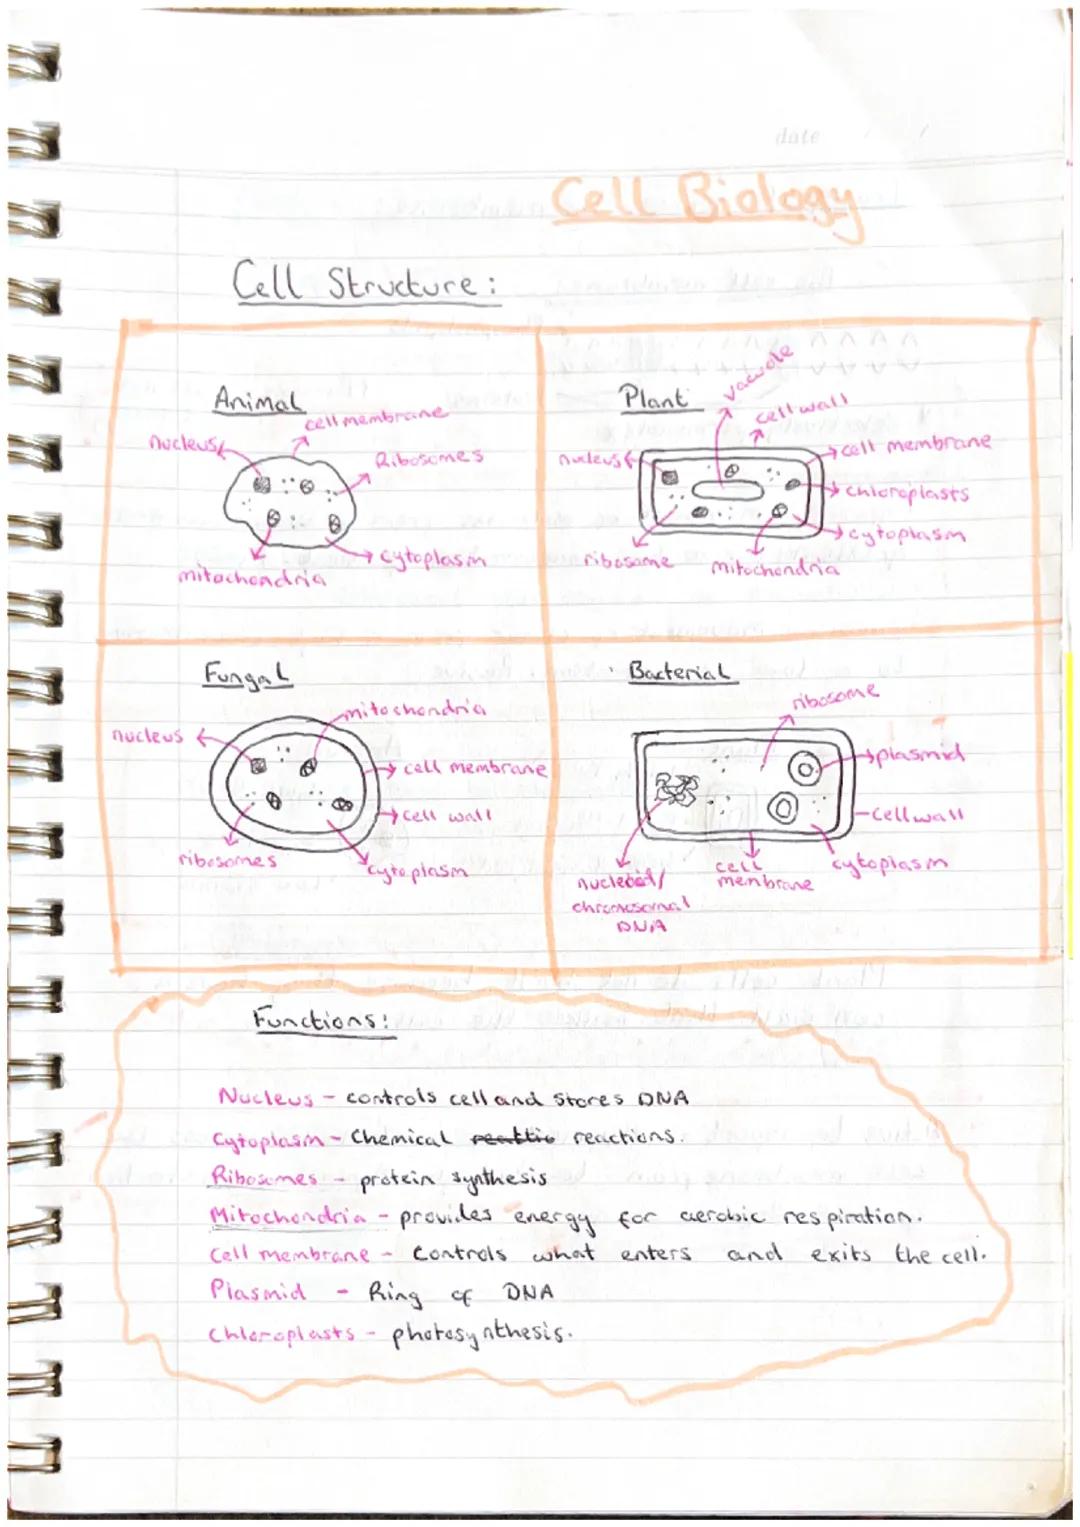 date / /
Cell Biology
Cell Structure:
Animal
cell membrane
nucleus
Ribosomes
cytoplasm
mitochondria
Plant
vacuole
cell wall
nucleus
cell membrane
chloroplasts
cytoplasm
ribosome
mitochondria
Fungal
mitochondria
nucleus
cell membrane
cell wall
ribosomes
cytoplasm
Bacterial
ribosome
plasmid
cell wall
cytoplasm
cell
membrane
nucleoid/
chromosomal
DNA
Functions:
Nucleus - controls cell and stores DNA
Cytoplasm - Chemical reactions.
Ribosomes - protein synthesis
Mitochondria - provides energy for aerobic respiration.
Cell membrane - Controls what enters and exits the cell.
Plasmid - Ring of DNA
Chloroplasts - photosynthesis.